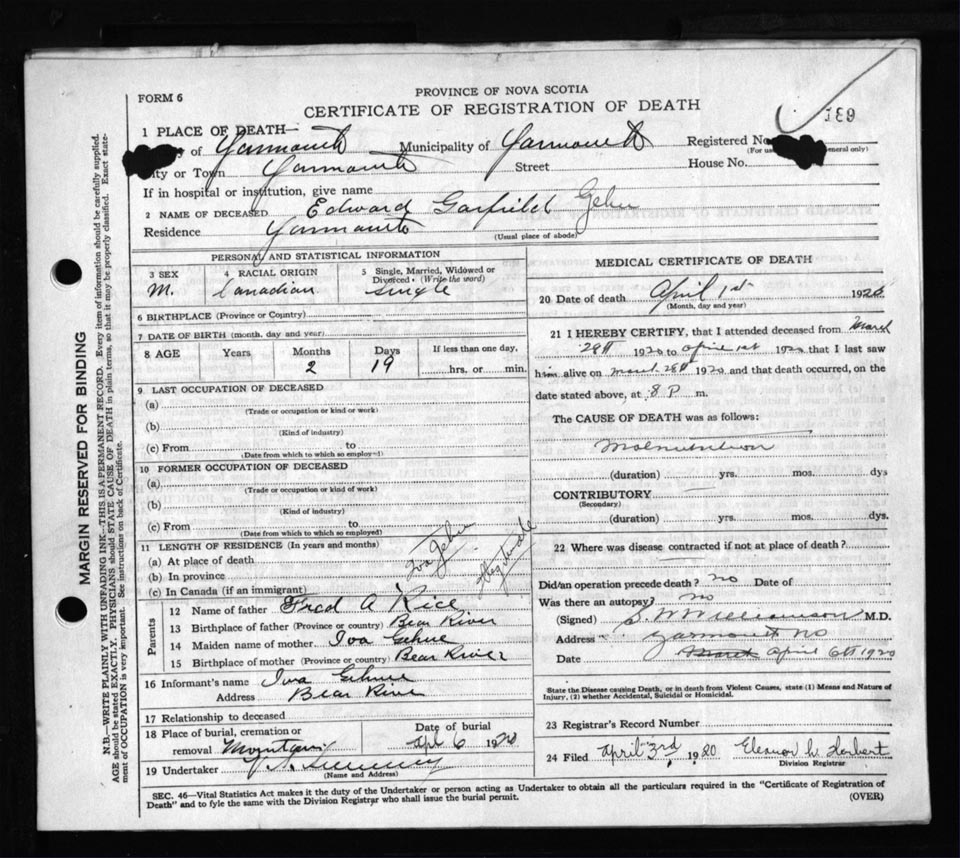 PROVINCE OF NOVA SCOTIA
FORM 6
CERTIFICATE OF REGISTRATION OF DEATH
189
1 PLACE OF DEATH—
of Yarmouth Municipality of Yarmouth Registered No.
(For use general only)
City or Town Yarmouth Street House No.
If in hospital or institution, give name
2 NAME OF DECEASED Edward Garfield Gehu
Residence Yarmouth
(Usual place of abode)
PERSONAL AND STATISTICAL INFORMATION
3 SEX 4 RACIAL ORIGIN 5 Single, Married, Widowed or Divorced. (Write the word)
M. Canadian single
6 BIRTHPLACE (Province or Country)
7 DATE OF BIRTH (month, day and year)
8 AGE Years Months Days If less than one day,
2 19 hrs. or min.
9 LAST OCCUPATION OF DECEASED
(a)
(Trade or occupation or kind or work)
(b)
(Kind of industry)
(c) From to
(Date from which to which so employed)
10 FORMER OCCUPATION OF DECEASED
(a)
(Trade or occupation or kind of work)
(b)
(Kind of industry)
(c) From to
(Date from which to which so employed)
11 LENGTH OF RESIDENCE (In years and months)
(a) At place of death
(b) In province
(c) In Canada (if an immigrant)
Iva Gehu
Parents
12 Name of father Fred A Rice
13 Birthplace of father (Province or country) Bear River
14 Maiden name of mother Iva Gehue
15 Birthplace of mother (Province or country) Bear River
16 Informant's name Iva Gehue
Address Bear River
17 Relationship to deceased
18 Place of burial, cremation or removal Date of burial
Mountain Apl 6 1920
19 Undertaker V. S. Sweeney
(Name and Address)
MEDICAL CERTIFICATE OF DEATH
20 Date of death April 1st 1920
(Month, day and year)
21 I HEREBY CERTIFY, that I attended deceased from March
28th 1920 to April 1st 1920 that I last saw
him alive on March 28th 1920 and that death occurred, on the
date stated above, at 8 P m.
The CAUSE OF DEATH was as follows:
Malnutrition
(duration) yrs. mos. dys
CONTRIBUTORY
(Secondary)
(duration) yrs. mos. dys.
22 Where was disease contracted if not at place of death?
Did an operation precede death? no Date of
Was there an autopsy? no
(Signed) S W Williamson M.D.
Address Yarmouth NS
Date March April 6th 1920
State the Disease causing Death, or in death from Violent Causes, state (1) Means and Nature of
Injury, (2) whether Accidental, Suicidal or Homicidal.
23 Registrar's Record Number
24 Filed April 3rd, 1920 Eleanor W. Herbert
Division Registrar
SEC. 46—Vital Statistics Act makes it the duty of the Undertaker or person acting as Undertaker to obtain all the particulars required in the "Certificate of Registration of
Death" and to fyle the same with the Division Registrar who shall issue the burial permit. (OVER)
MARGIN RESERVED FOR BINDING
N.B.—WRITE PLAINLY WITH UNFADING INK—THIS IS A PERMANENT RECORD. Every item of information should be carefully supplied.
AGE should be stated EXACTLY. PHYSICIANS should STATE CAUSE OF DEATH in plain terms, so that it may be properly classified. Exact state-
ment of OCCUPATION is very important. See instructions on back of Certificate.